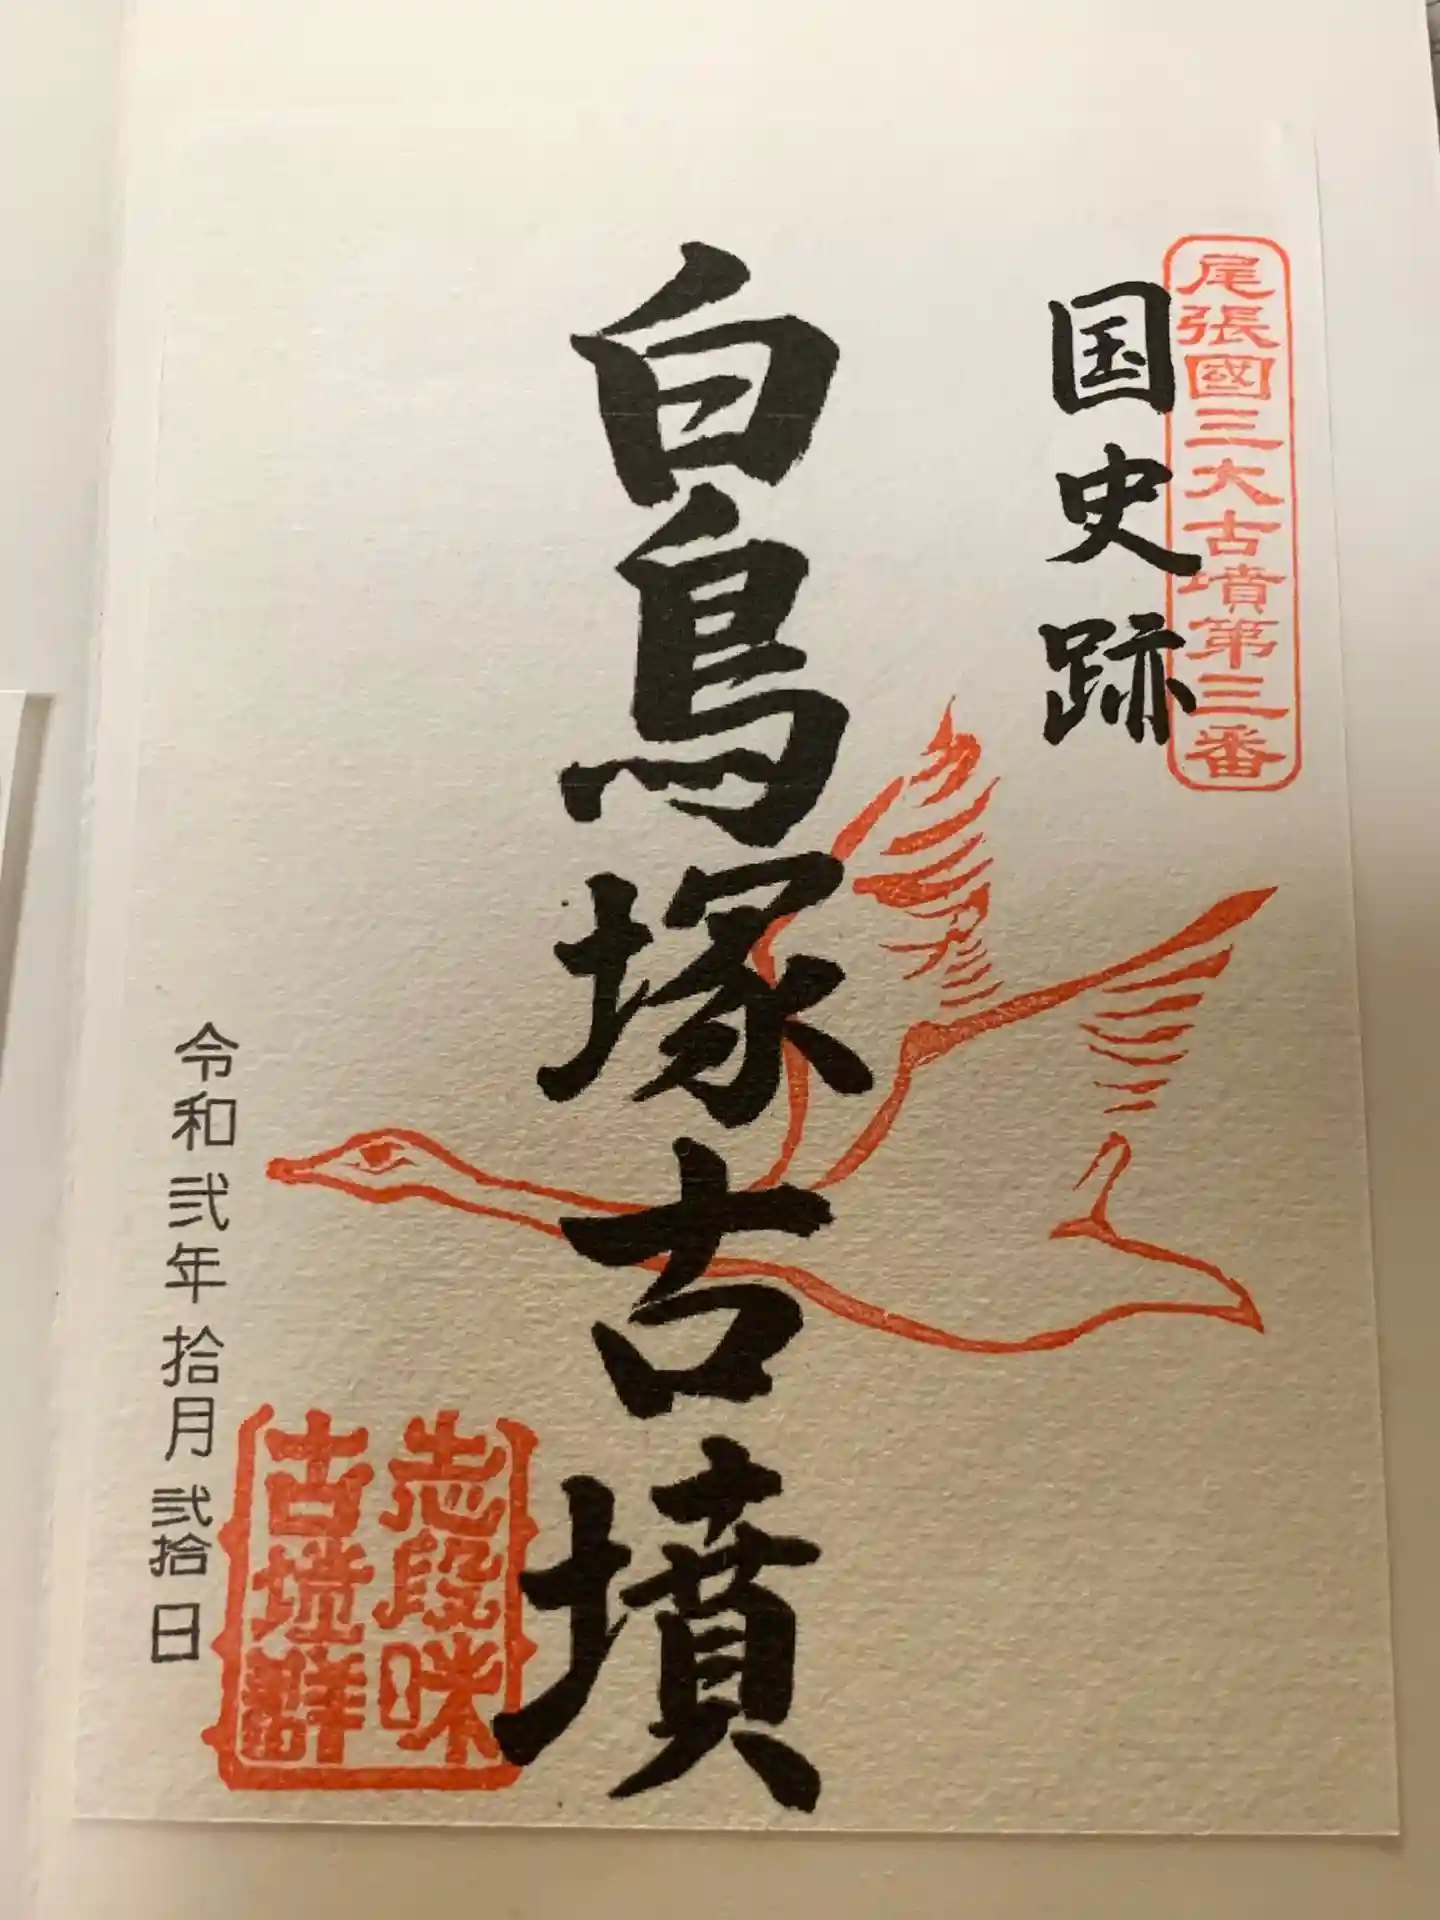 尾張國三大古墳第三番
国史跡
白鳥塚古墳
志段味
古墳群
令和弐年拾月弐拾日